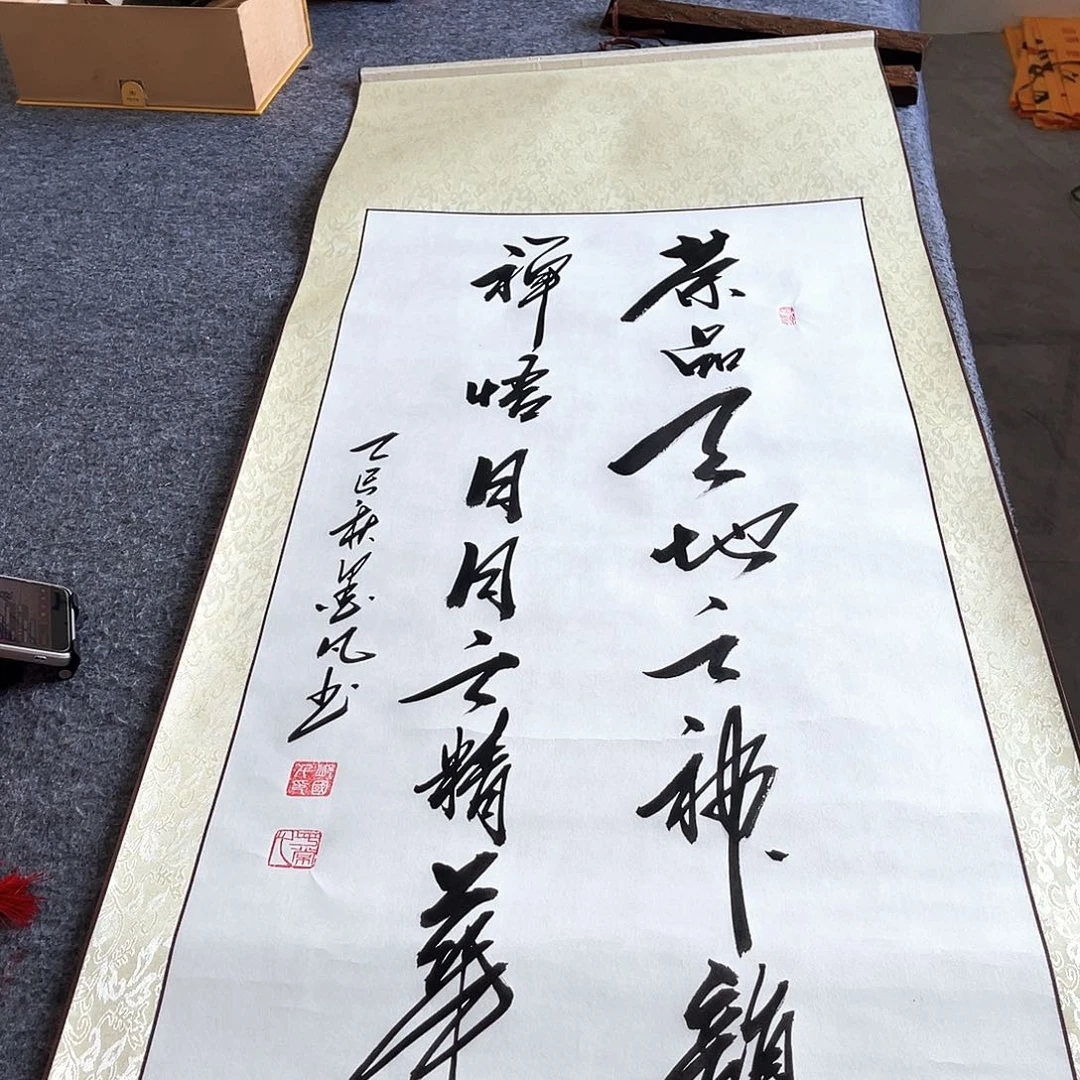 茶品天地之神韻
禪悟日月之精華
乙巳秋墨凡书